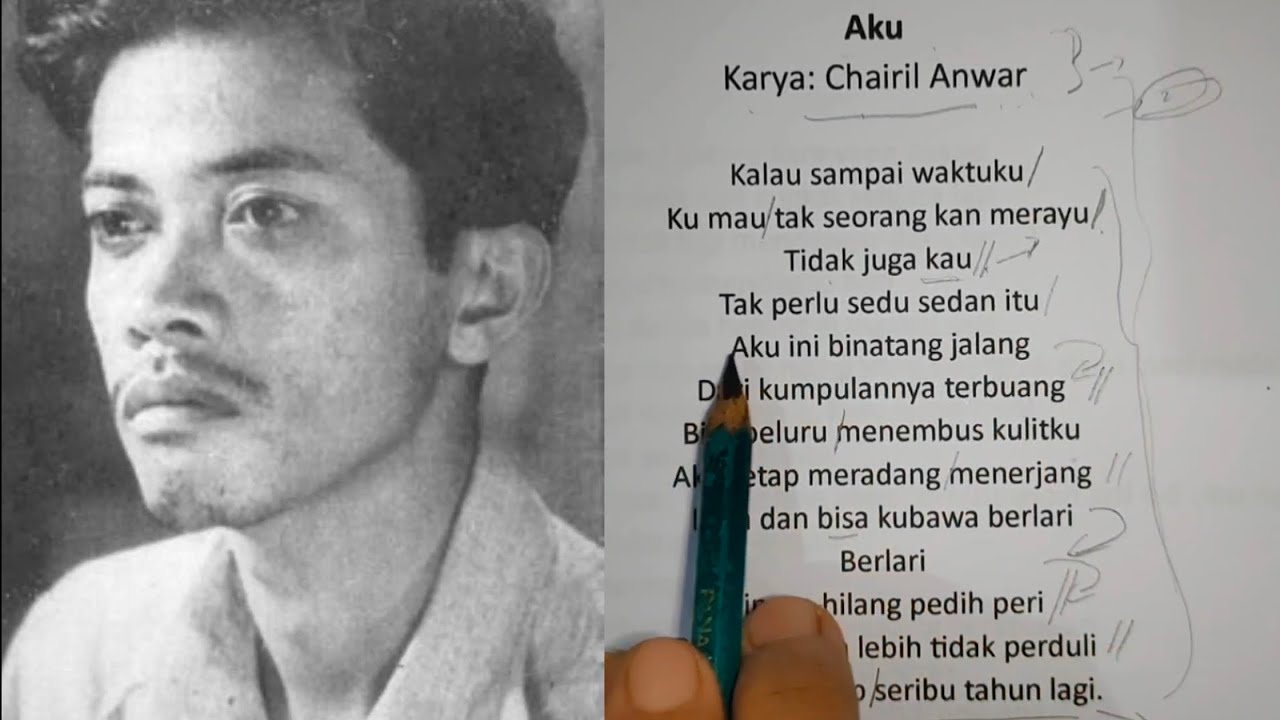 Aku
Karya: Chairil Anwar
Kalau sampai waktuku
Ku mau tak seorang kan merayu
Tidak juga kau
Tak perlu sedu sedan itu
Aku ini binatang jalang
kumpulannya terbuang
menembus kulitku
meradang menerjang
dan bisa kubawa berlari
Berlari
hilang pedih peri
lebih tidak perduli
seribu tahun lagi.